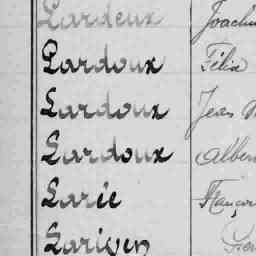 Lardeux Joachi
Lardoux Félix
Lardoux Jean
Lardoux Alber
Larie Françoi
Larigen